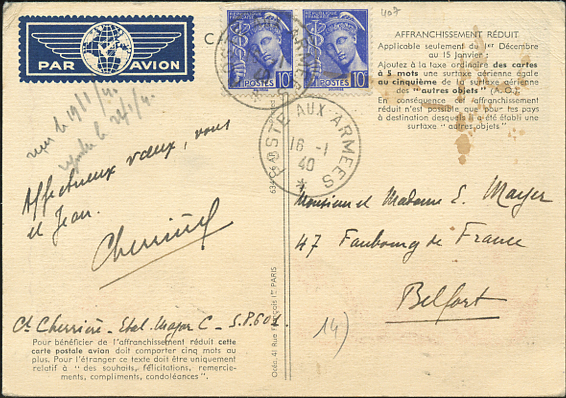 PAR AVION
reçu le 19/1/40
Affectueux vœux, vous
et Jean.
Cherrière
Ct Cherrière - Etat-Major C - S.P. 601.
Pour bénéficier de l'affranchissement réduit cette
carte postale avion doit comporter cinq mots au
plus. Pour l'étranger ce texte doit être uniquement
relatif à "des souhaits, félicitations, remercie-
ments, compliments, condoléances".
Océo, 41 Rue François Ier PARIS
POSTES 10c
POSTES 10c
407
POSTE AUX ARMEES
16 -1
40
AFFRANCHISSEMENT RÉDUIT
Applicable seulement du 1er Décembre
au 15 janvier
Ajoutez à la taxe ordinaire des cartes
à 5 mots une surtaxe aérienne égale
au cinquième de la surtaxe aérienne
des "autres objets" (A.O.)
En conséquence cet affranchissement
réduit n'est possible que pour les pays
à destination desquels il a été établi une
surtaxe "autres objets"
Monsieur et Madame E. Mayer
47 Faubourg de France
Belfort
14)